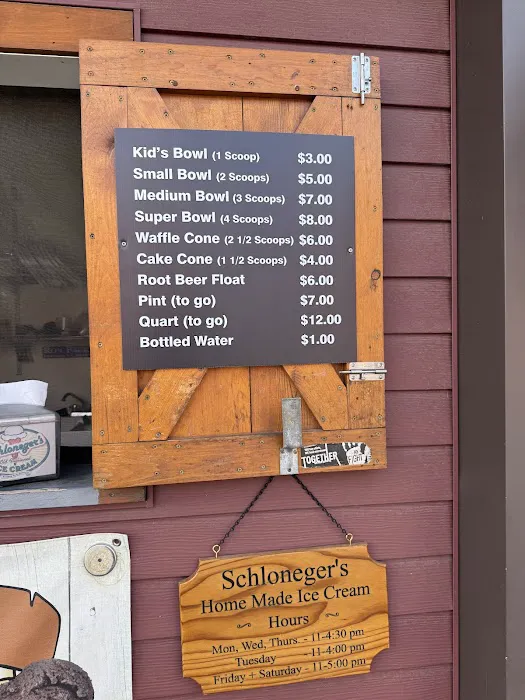 Kid's Bowl (1 Scoop) $3.00
Small Bowl (2 Scoops) $5.00
Medium Bowl (3 Scoops) $7.00
Super Bowl (4 Scoops) $8.00
Waffle Cone (2 1/2 Scoops) $6.00
Cake Cone (1 1/2 Scoops) $4.00
Root Beer Float $6.00
Pint (to go) $7.00
Quart (to go) $12.00
Bottled Water $1.00
TOGETHER
Schloneger's
ICE CREAM
Schloneger's
Home Made Ice Cream
Hours
Mon, Wed, Thurs. - 11-4:30 pm
Tuesday - 11-4:00 pm
Friday + Saturday - 11-5:00 pm